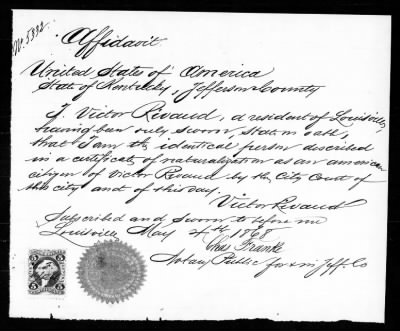 No. 5332.
Affidavit.
United States of America
State of Kentucky, Jefferson County
I, Victor Rivaud, a resident of Louisville,
having been duly sworn, state on oath,
that I am the identical person described
in a certificate of naturalization as an american
citizen of Victor Rivaud by the City Court of
this city and of this day.
Victor Rivaud
Subscribed and Sworn to before me
Louisville May 4th 1868
Chas Franke
Notary Public for & in Jeff. Co
5 5